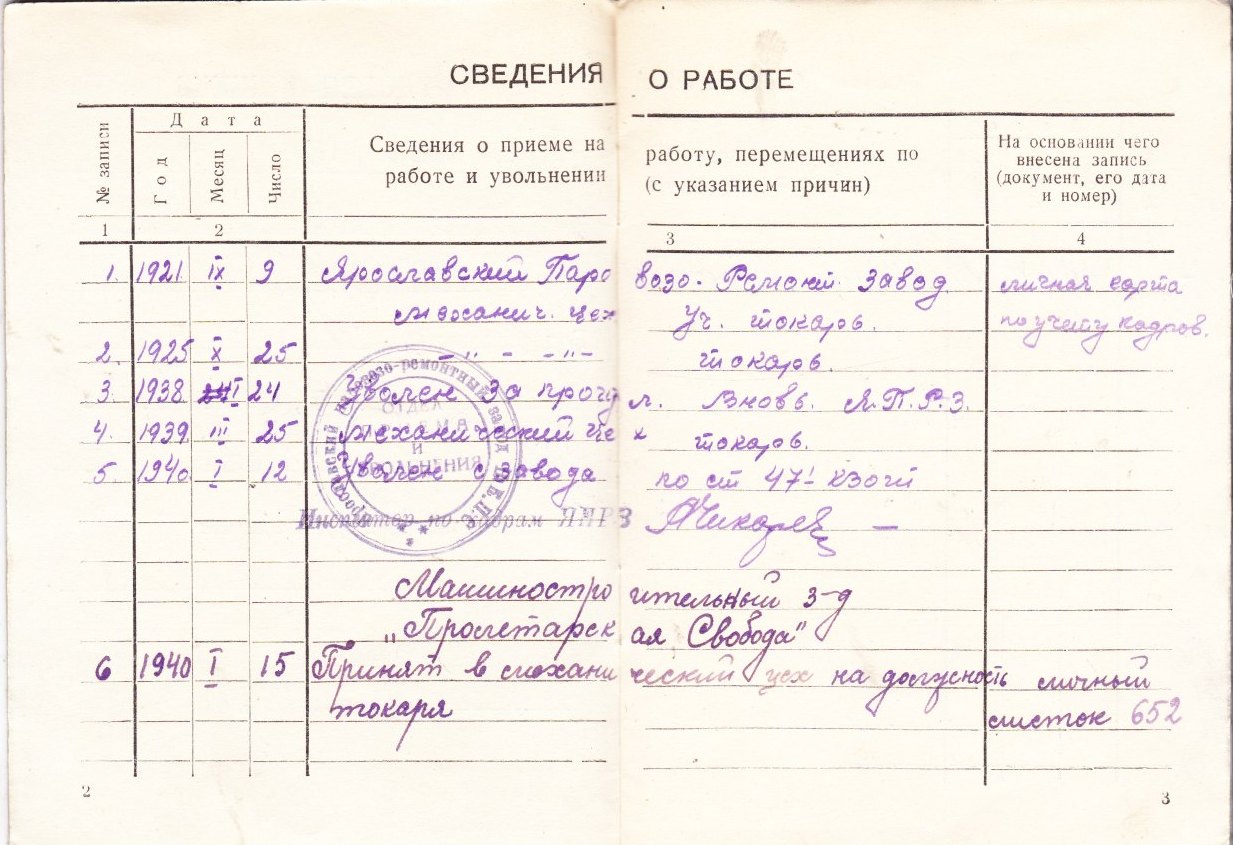 СВЕДЕНИЯ О РАБОТЕ
№ записи
Дата
Год
Месяц
Число
Сведения о приеме на работу, перемещениях по
работе и увольнении (с указанием причин)
На основании чего
внесена запись
(документ, его дата
и номер)
1 2 3 4
1. 1921 IX 9 Ярославский Паровозо-Ремонт. Завод личная карта
механич. цех Уч. токарь. по учету кадров.
2. 1925 X 25 – „ – – „ – токарь.
3. 1938 I 24 Уволен за прогул. Вновь. Я.П.Р.З.
4. 1939 III 25 механический цех токарь.
5. 1940 I 12 Уволен с завода по ст 47 КЗОТ
Инспектор по кадрам ЯПРЗ
ОТДЕЛ
ПРИЕМА
И
УВОЛЬНЕНИЯ
Машиностроительный з-д
„Пролетарская Свобода"
6 1940 I 15 Принят в механический цех на должность личный
токаря листок 652
2
3